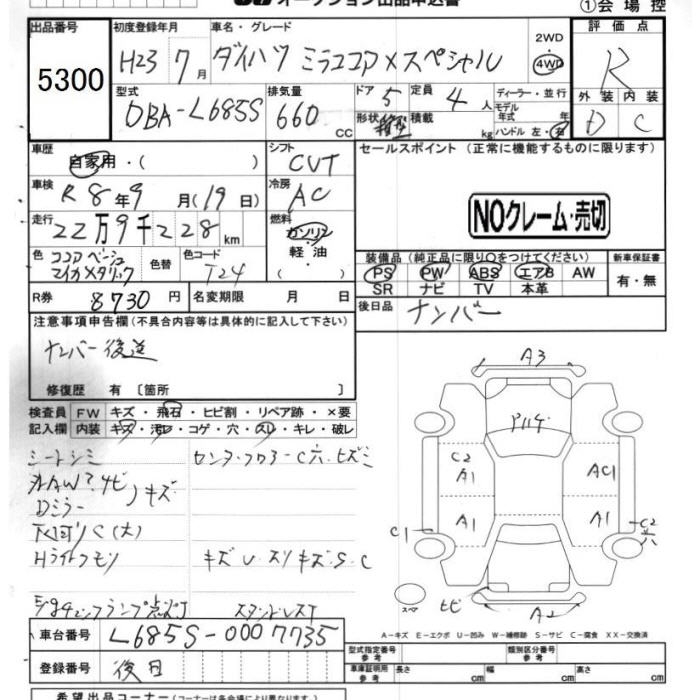 オークション出品申込書
①会場控
出品番号
5300
初度登録年月
H23 7月
車名・グレード
ダイハツ ミラココア Xスペシャル
2WD
4WD
評価点
R
外装 内装
D C
型式
DBA-L685S
排気量
660 cc
ドア 5
定員 4 人
形状 箱型
積載 kg
ディーラー・並行
モデル年式 年
ハンドル 左・右
車歴
自家用・( )
シフト
CVT
セールスポイント (正常に機能するものに限ります)
NOクレーム・売切
車検
R8年9月(19日)
冷房
AC
走行
22万9千228km
燃料
ガソリン
軽油
( )
色
ココアベージュ
マイカメタリック
色替
色コード
T24
装備品 (純正品に限り○をつけてください)
PS PW ABS エアB AW
SR ナビ TV 本革
新車保証書
有・無
R券 8730円
名変期限 月 日
後日品 ナンバー
注意事項申告欄 (不具合内容等は具体的に記入して下さい)
ナンバー後送
修復歴 有 〔箇所 〕
検査員 FW キズ・飛石・ヒビ割・リペア跡・×要
記入欄 内装 キズ・汚れ・コゲ・穴・スレ・キレ・破レ
シートシミ
センターフロアーC穴、ヒズミ
キズ
Dミラー
下廻りC(大)
Hライトクモリ
キズU・スリキズ・S・C
A3
C2
A1
AC1
A1
A1
C1
C2
穴
スペア
ヒビ
A2
A-キズ E-エクボ U-凹み W-補修跡 S-サビ C-腐食 XX-交換済
車台番号 L685S-0007735
登録番号 後日
型式指定番号
参考
類別区分番号
参考
車庫証明用
参考
長さ cm
幅 cm
高さ cm
希望出品コーナー (コーナーは各会場により異なります)